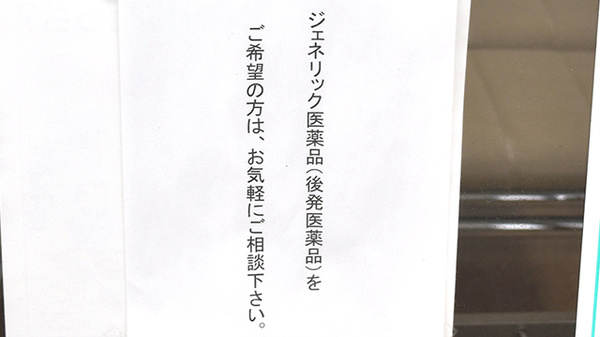 ジェネリック医薬品(後発医薬品)を
ご希望の方は、お気軽にご相談下さい。